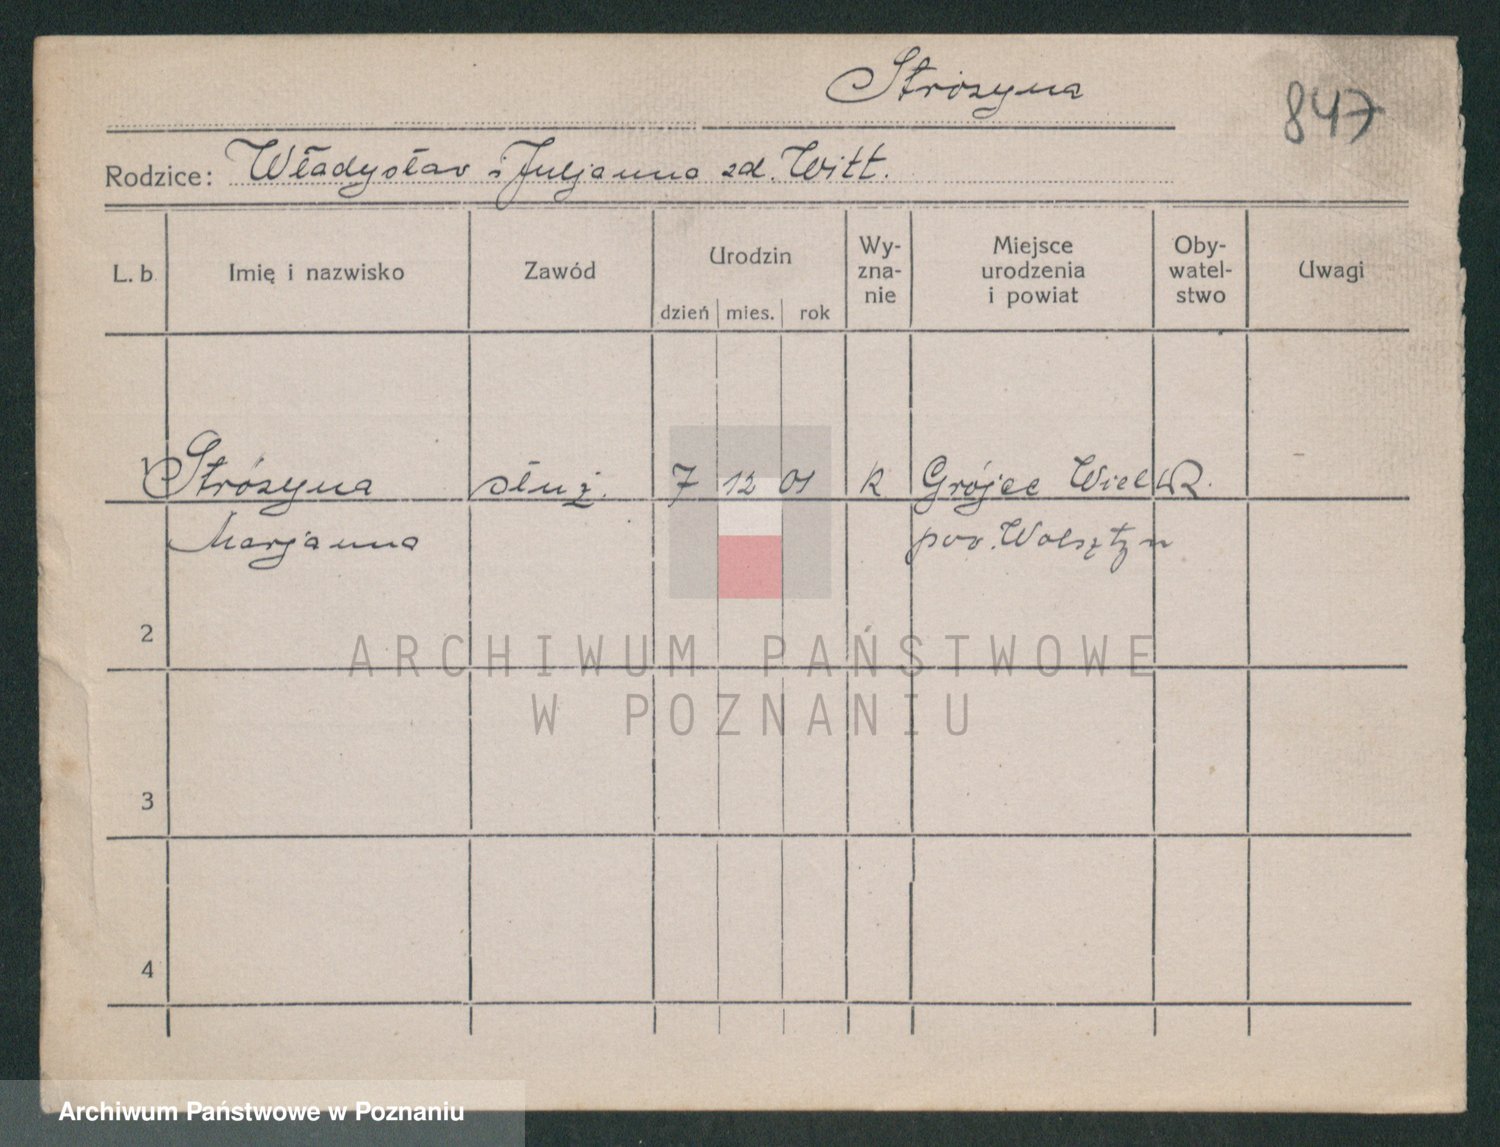 Strózyna
847
Rodzice: Władysław i Juljanna zd. Witt.
L. b. Imię i nazwisko Zawód Urodzin dzień mies. rok Wy-zna-nie Miejsce urodzenia i powiat Oby-watel-stwo Uwagi
1 Strózyna służ. 7 12 01 k Grójec Wielk.
Marjanna pow. Wolsztyn
2
ARCHIWUM PAŃSTWOWE
W POZNANIU
3
4
Archiwum Państwowe w Poznaniu